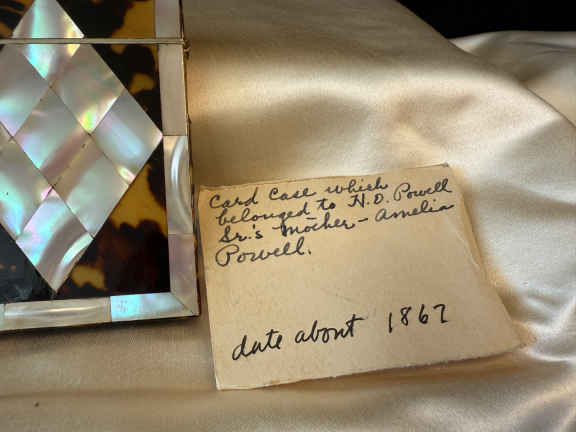 Card Case which
belonged to N.D. Powell
Sr.'s Mother - Amelia
Powell.
date about 1867